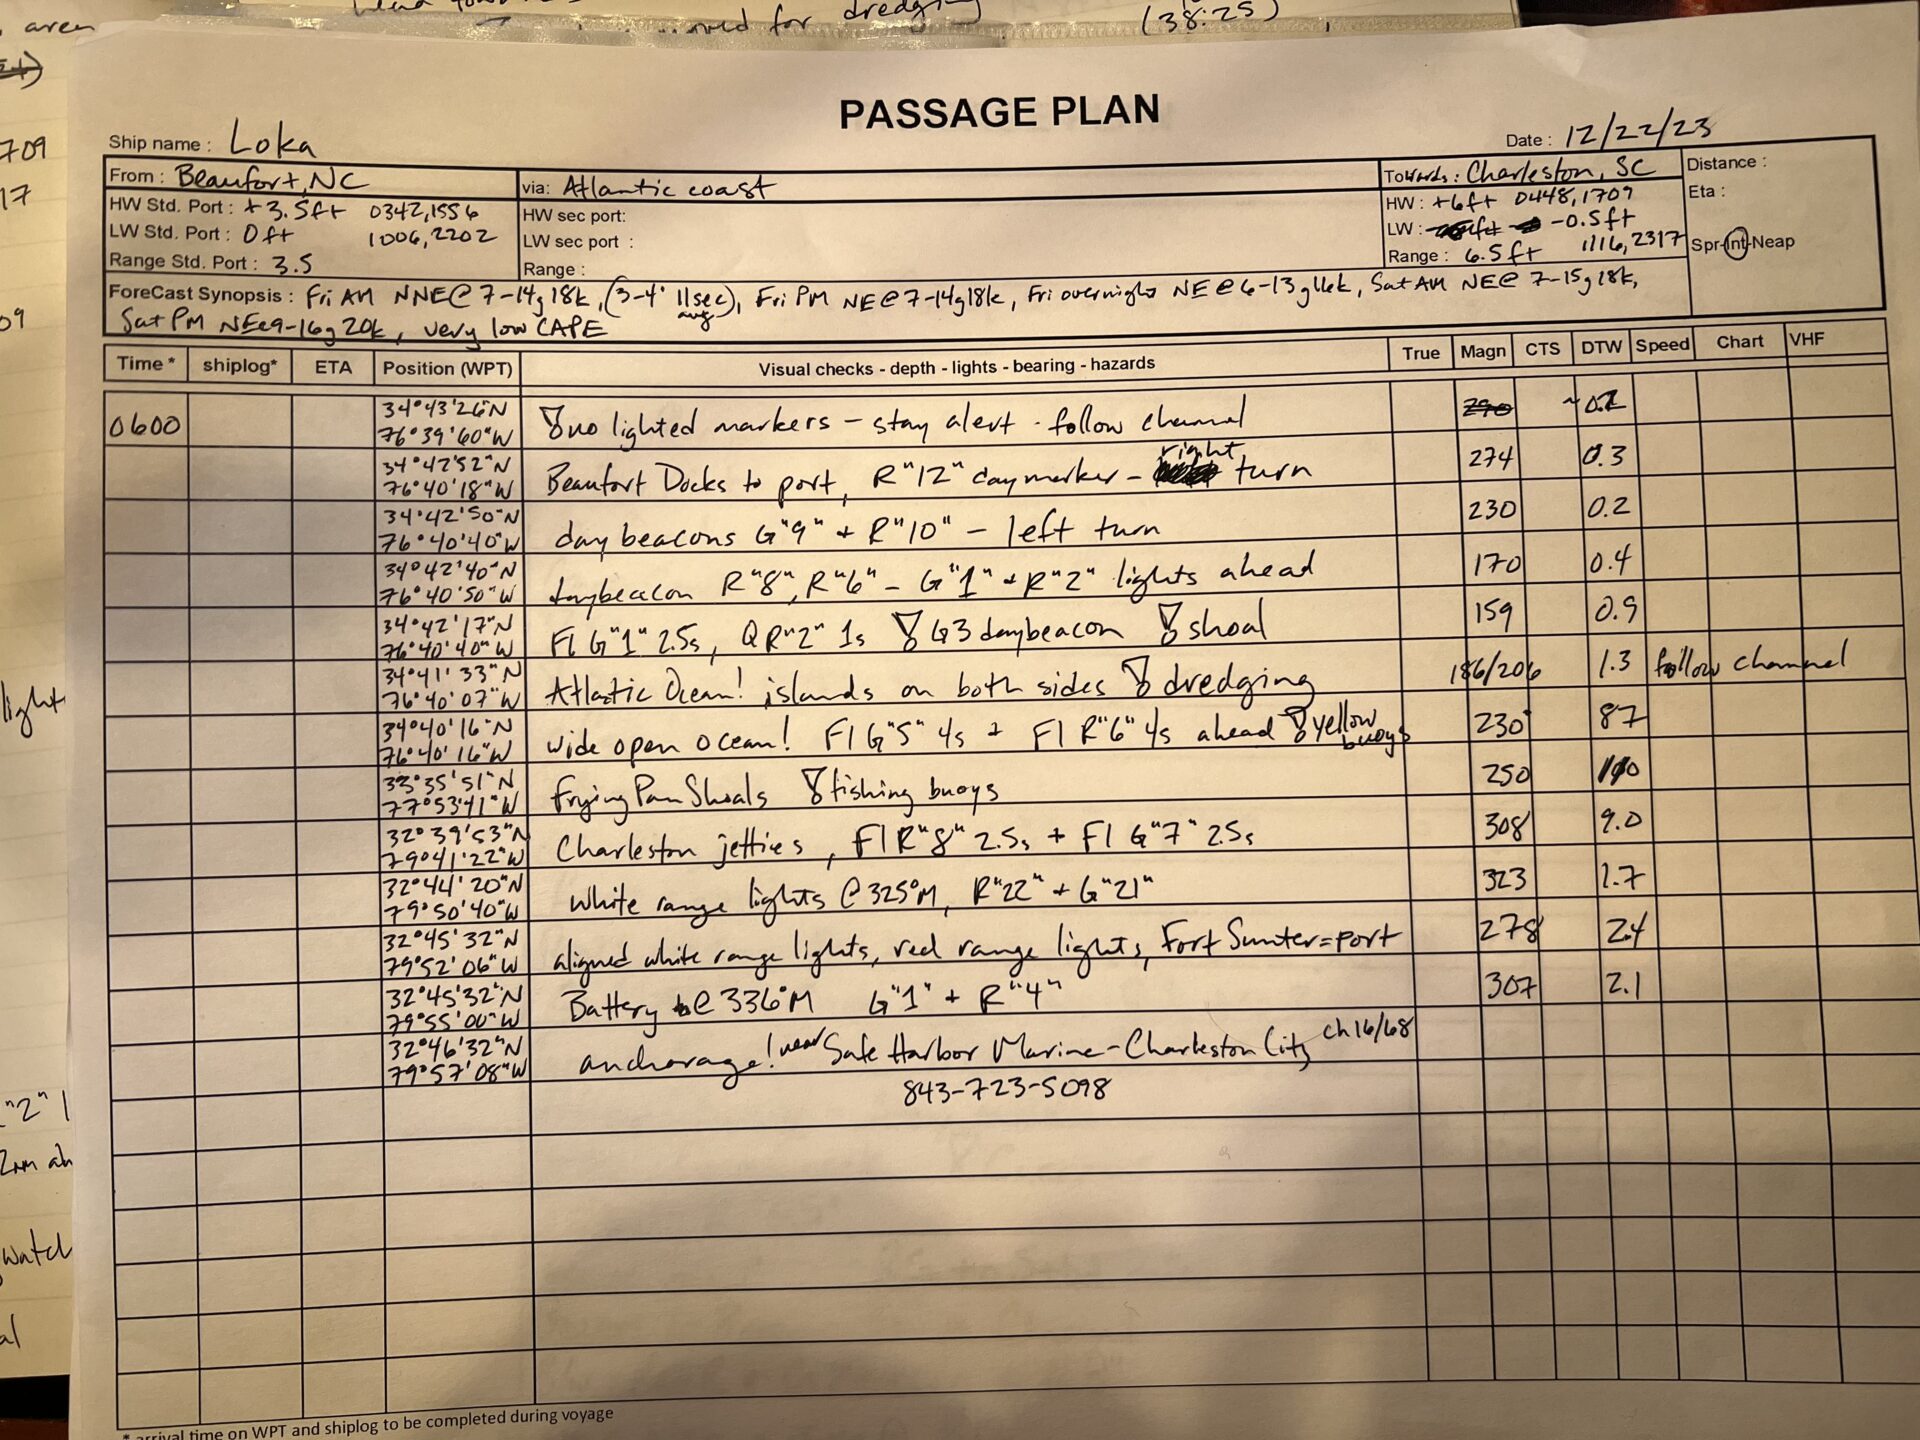 area
moved for dredging
(38.25)
709
17
09
light
"2"
2nm ah
watch
al
PASSAGE PLAN
Ship name : Loka
Date : 12/22/23
From : Beaufort, NC
via: Atlantic coast
Towards : Charleston, SC
Distance :
HW Std. Port : +3.5ft 0342,1556
HW sec port:
HW : +6ft 0448,1709
Eta :
LW Std. Port : 0ft 1006,2202
LW sec port :
LW : -0.5ft
Range Std. Port : 3.5
Range :
Range : 6.5ft 1116,2317
Spr-Int-Neap
ForeCast Synopsis : Fri AM NNE@7-14g18k, (3-4' 11sec avg), Fri PM NE@7-14g18k, Fri overnight NE@6-13g16k, Sat AM NE@ 7-15g18k,
Sat PM NE@9-16g20k, very low CAPE
Time * shiplog* ETA Position (WPT) Visual checks - depth - lights - bearing - hazards True Magn CTS DTW Speed Chart VHF
34°43'26"N
0600 76°39'60"W no lighted markers - stay alert - follow channel 290 ~0.2
34°42'52"N
76°40'18"W Beaufort Docks to port, R"12" daymarker - right turn 274 0.3
34°42'50"N
76°40'40"W daybeacons G"9" + R"10" - left turn 230 0.2
34°42'40"N
76°40'50"W daybeacon R"8", R"6" - G"1" + R"2" lights ahead 170 0.4
34°42'17"N
76°40'40"W Fl G"1" 2.5s, Q R"2" 1s G3 daybeacon shoal 159 0.9
34°41'33"N
76°40'07"W Atlantic Ocean! islands on both sides dredging 186/206 1.3 follow channel
34°40'16"N
76°40'16"W wide open ocean! Fl G"5" 4s + Fl R"6" 4s ahead yellow buoys 230° 87
33°35'51"N
77°53'41"W Frying Pan Shoals fishing buoys 250 110
32°39'53"N
79°41'22"W Charleston jetties, Fl R"8" 2.5s + Fl G"7" 2.5s 308 9.0
32°44'20"N
79°50'40"W white range lights @ 325°M, R"22" + G"21" 323 1.7
32°45'32"N
79°52'06"W aligned white range lights, red range lights, Fort Sumter=port 278 2.4
32°45'32"N
79°55'00"W Battery @ 336°M G"1" + R"4" 307 2.1
32°46'32"N
79°57'08"W anchorage! near Safe Harbor Marine-Charleston City ch16/68
843-723-5098
* arrival time on WPT and shiplog to be completed during voyage